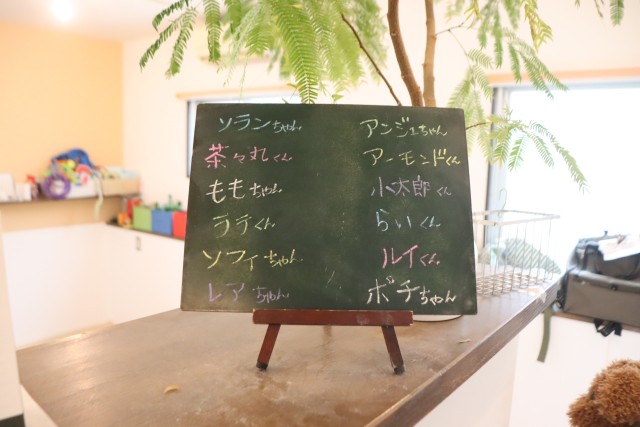 ソランちゃん
茶々丸くん
ももちゃん
ラテくん
ソフィちゃん
レアちゃん
アンジュちゃん
アーモンドくん
小太郎くん
らいくん
ルイくん
ボチちゃん